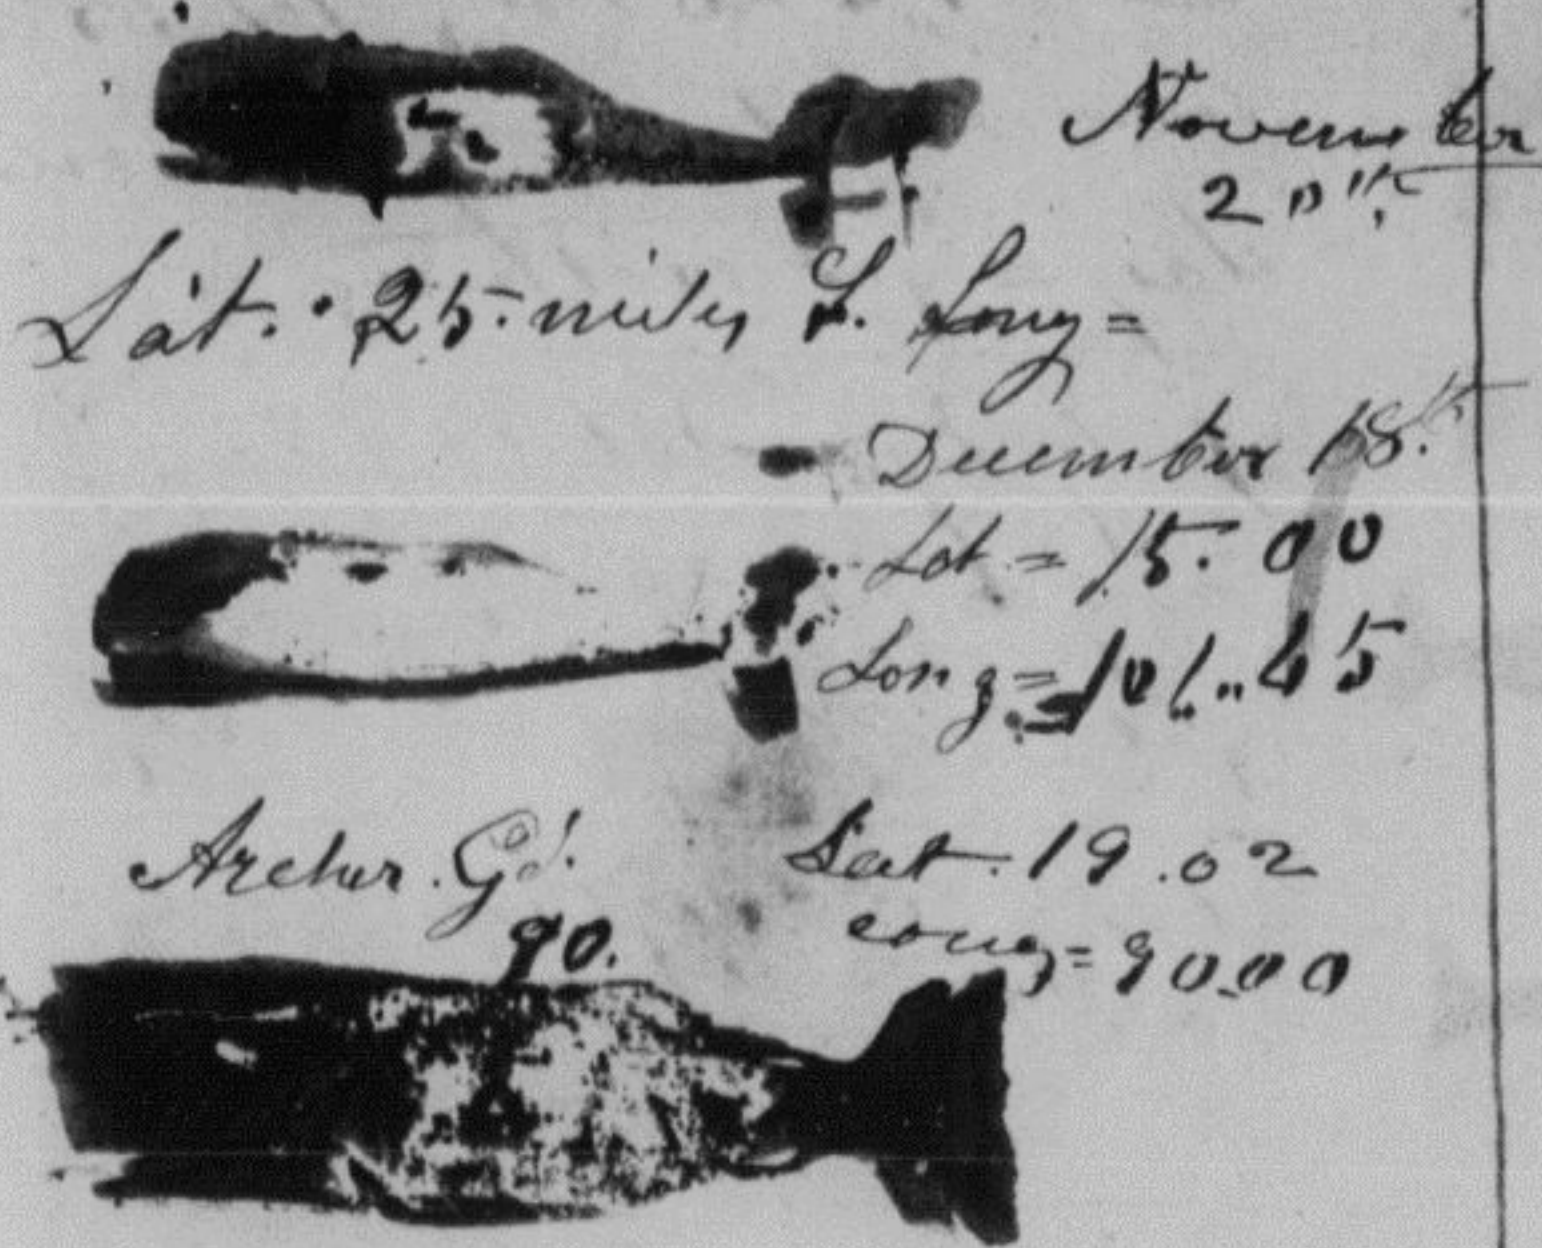 November
20th
Lat. 25 miles S. Long =
December 18th
Lat = 15.00
Long = 101..45
Archer. Gd. Lat. 19.02
90. Long = 90.00